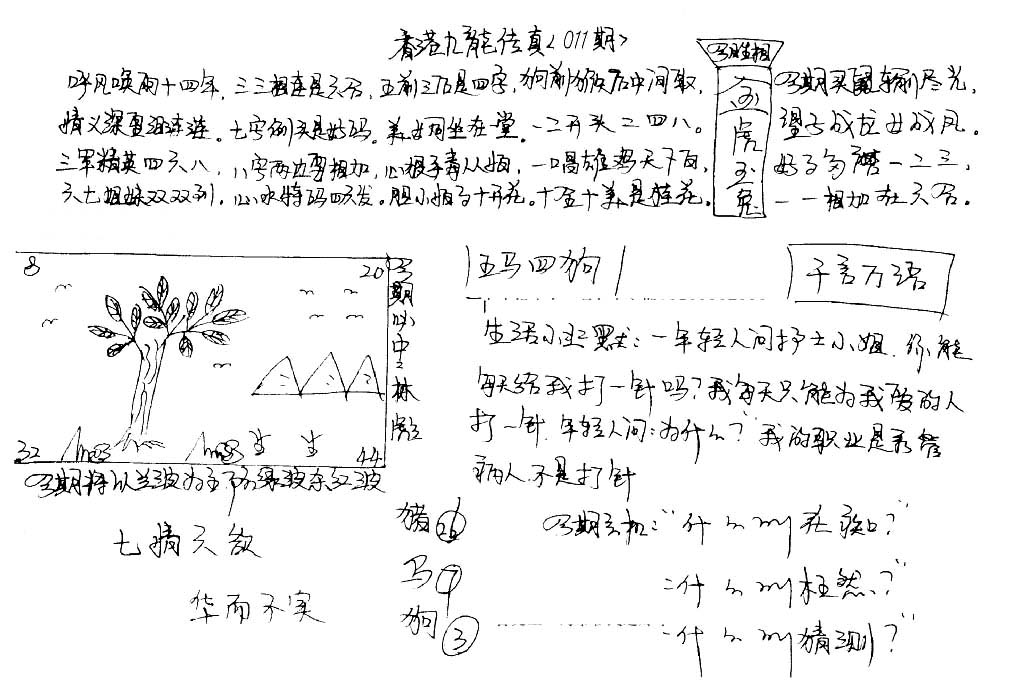 香港九龍传真<011期>
呼风唤雨十四年，三三相连是六合，五前三后是四字，狗前猴后中间取，
情义深重 七字例头是好码。美女同坐在堂。一二开头二四八。
三军精英四六八，八字两边要相加，心狠手毒从 一唱雄鸡天下白，
六七姐妹双双到，心水特码四方发。胆小怕 十 十全十美是桂花。
今期生肖相
金
虎
玉
兔
今期买 尽光，
望子成龙女成凤。
好 一二三，
一一相加在六合。
8 20
32 44
今期必中
林
彪
五马四狗
千言万语
生活小幽默：一年轻人问护士小姐，你能
每天给我打一针吗？我每天只能为我爱的人
打一针，年轻人问：为什么？"我的职业是
病人，不是打针
今期将以兰波为主 绿波 红波
七情六欲
华而不实
猪 26
马 7
狗 3
今期玄机："什么叫 ？"
二什么叫枉然？"
一什么叫猜测？"